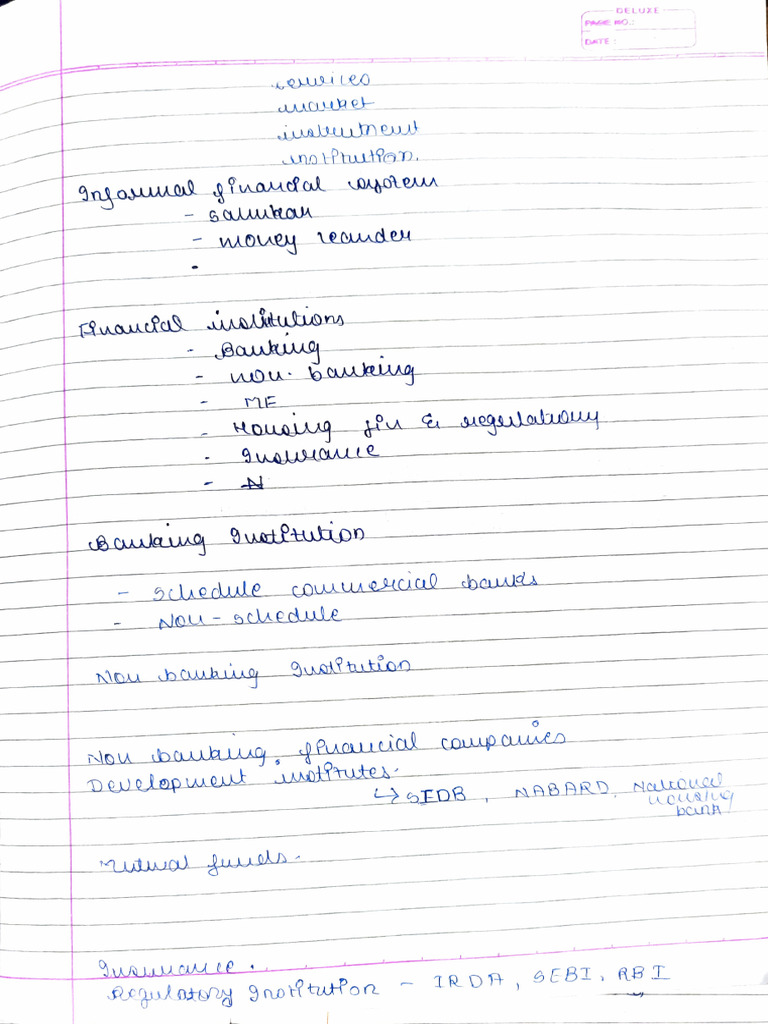 DELUXE
PAGE NO.:
DATE:
services
market
instrument
institution.
Informal financial system
- Sahukar
- money leander
-
Financial institutions
- Banking
- non-banking
- MF
- Housing fin & regulatory
- Insurance
- N
Banking Institution
- Schedule commercial banks
- Non-schedule
Non banking Institution
Non banking financial companies
Development institutes.
↳ SIDB, NABARD, National
housing
bank
Mutual funds.
Insurance.
Regulatory Institution - IRDA, SEBI, RBI